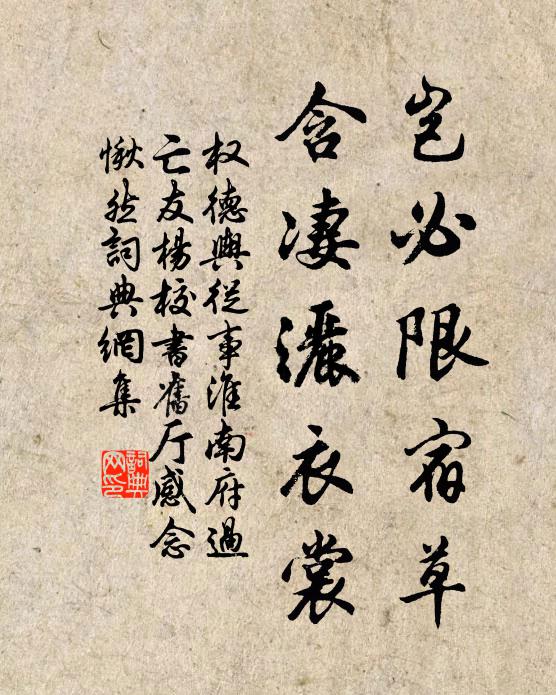 岂必限宿草
含凄灑衣裳
权德輿從事淮南府過
亡友楊校書舊厅感念
愀然詞典網集
詞典
网印